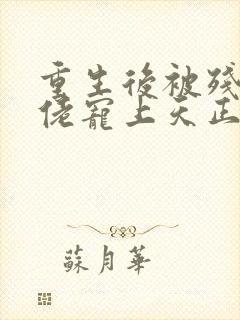 重生後被殘
佬寵上天正
蘇月華